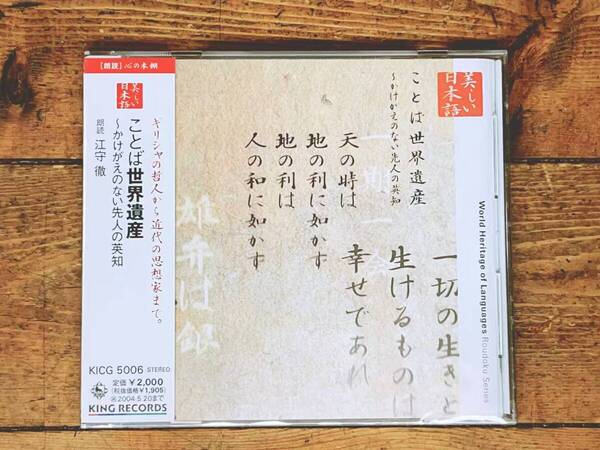 [朗読] 心の本棚
美しい
日本語
ギリシャの哲人から近代の思想家まで。
ことば世界遺産
～かけがえのない先人の英知
朗読 江守 徹
KICG 5006 STEREO
定価 ¥2,000
(税抜価格¥1,905)
2004・5・20まで
KING RECORDS
美しい
日本語
World Heritage of Languages Roudoku Series
ことば世界遺産
～かけがえのない先人の英知
天の時は
地の利に如かず
地の利は
人の和に如かず
一切の生きと
生けるものは
幸せであれ
一期一会
雄弁は銀